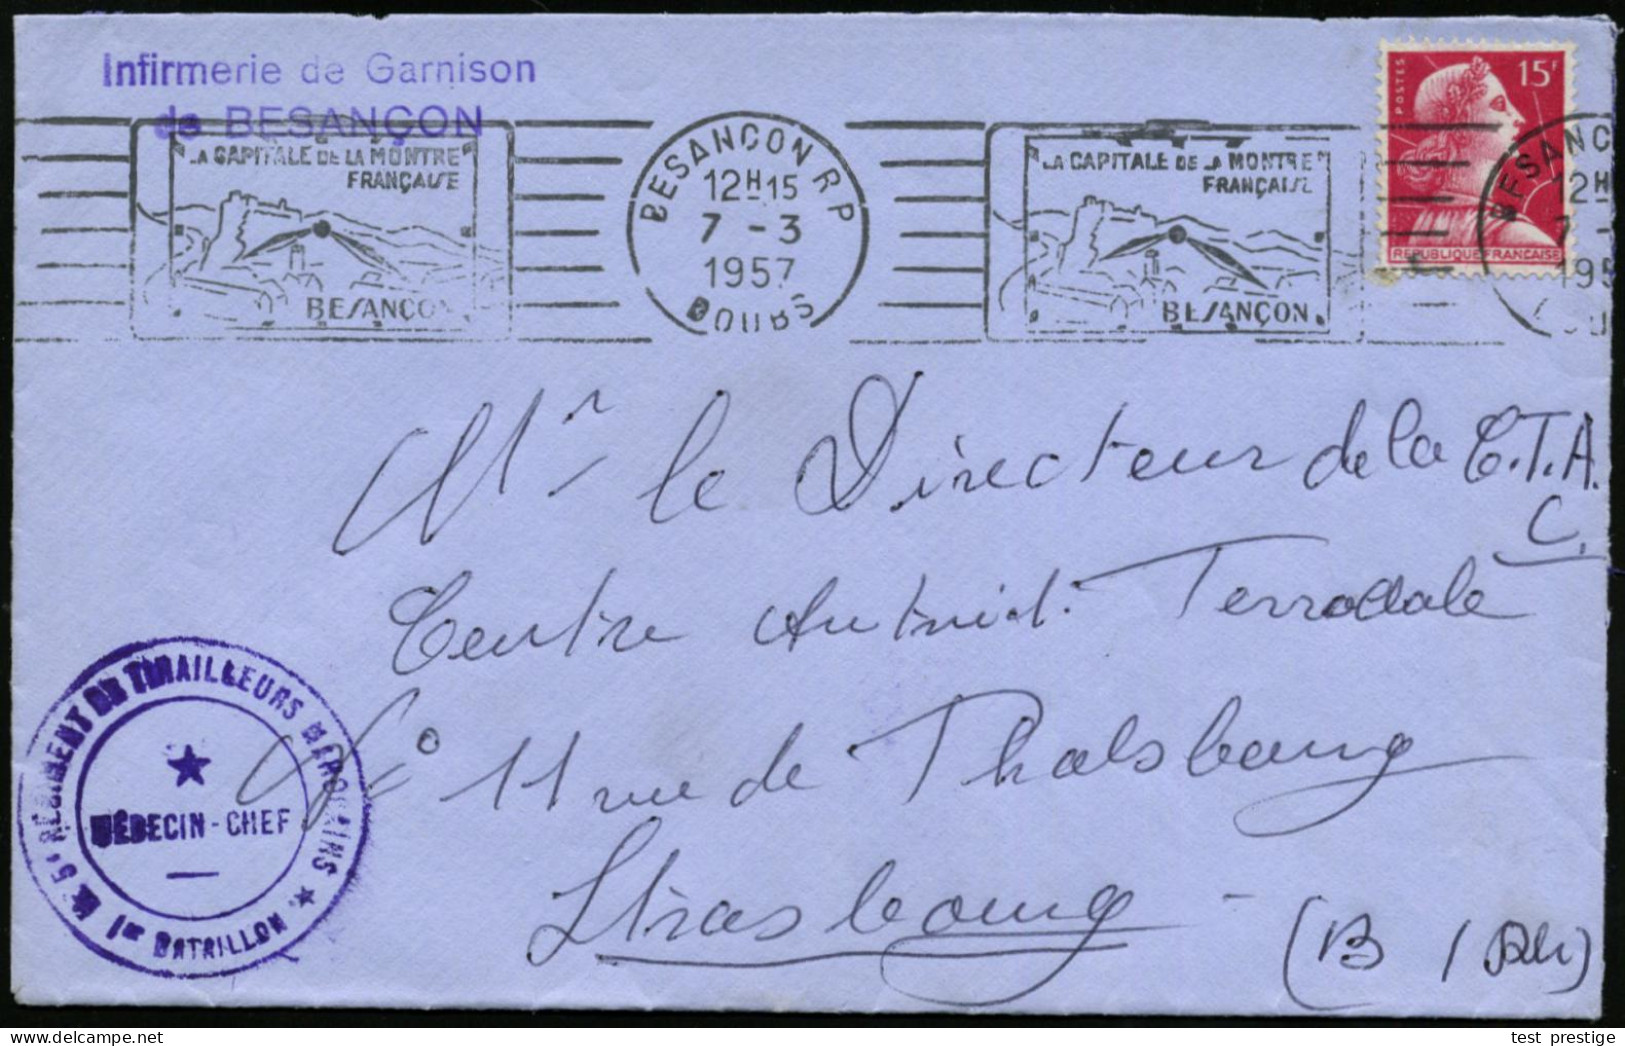 Infirmerie de Garnison
de BESANÇON
LA CAPITALE DE LA MONTRE
FRANÇAISE
BESANÇON
BESANÇON R.P
12H15
7 - 3
1957
DOUBS
LA CAPITALE DE LA MONTRE
FRANÇAISE
BESANÇON
POSTES
15F
REPUBLIQUE FRANÇAISE
BESANÇ
12H
7 -
195
Mr le Directeur de la C.T.A.
C.
Centre
11 rue de Phalsbourg
Strasbourg
(B / Rh)
5e RÉGIMENT DE TIRAILLEURS MAROCAINS
MÉDECIN-CHEF
1er BATAILLON
test_prestige